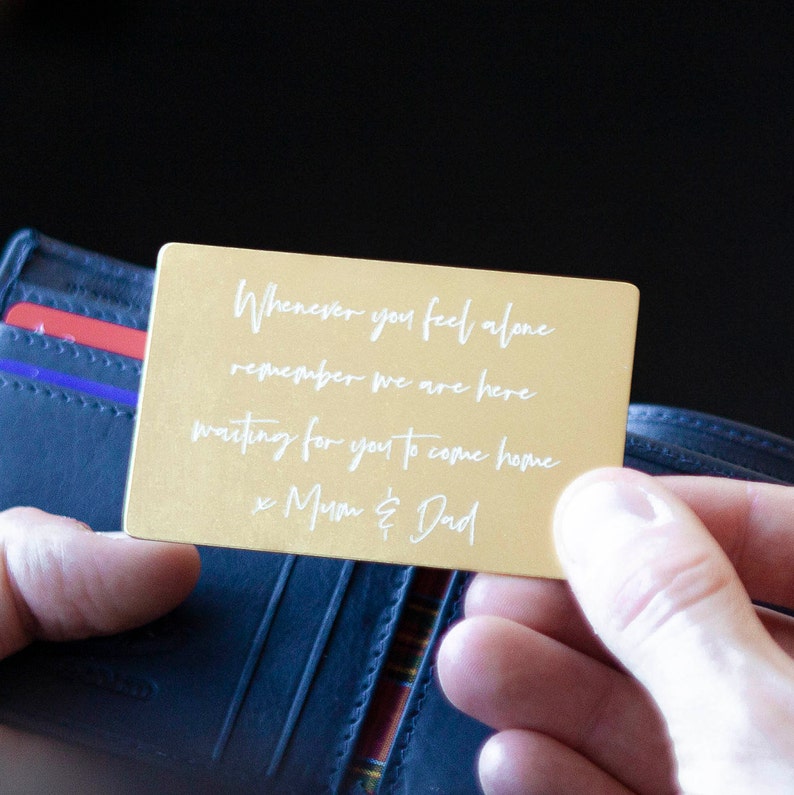 Whenever you feel alone
remember we are here
waiting for you to come home
x Mum & Dad